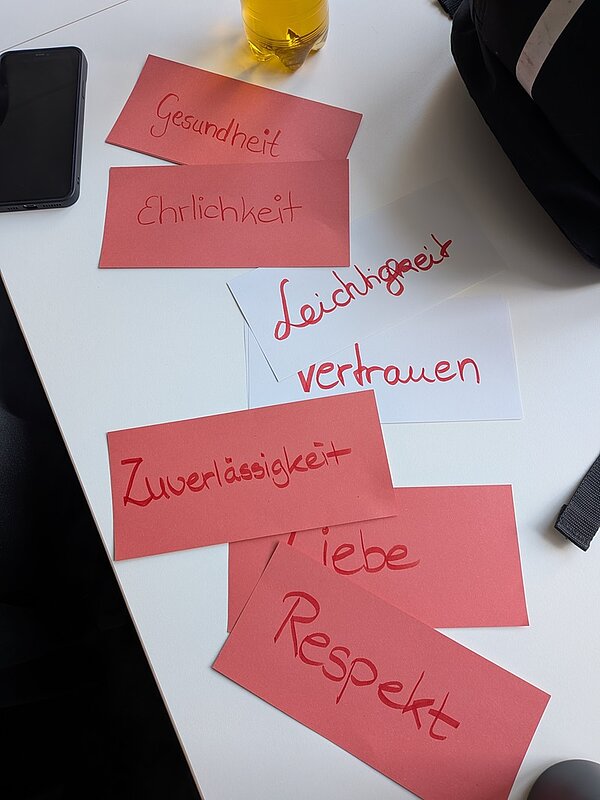 Gesundheit
Ehrlichkeit
Leichtigkeit
vertrauen
Zuverlässigkeit
Liebe
Respekt